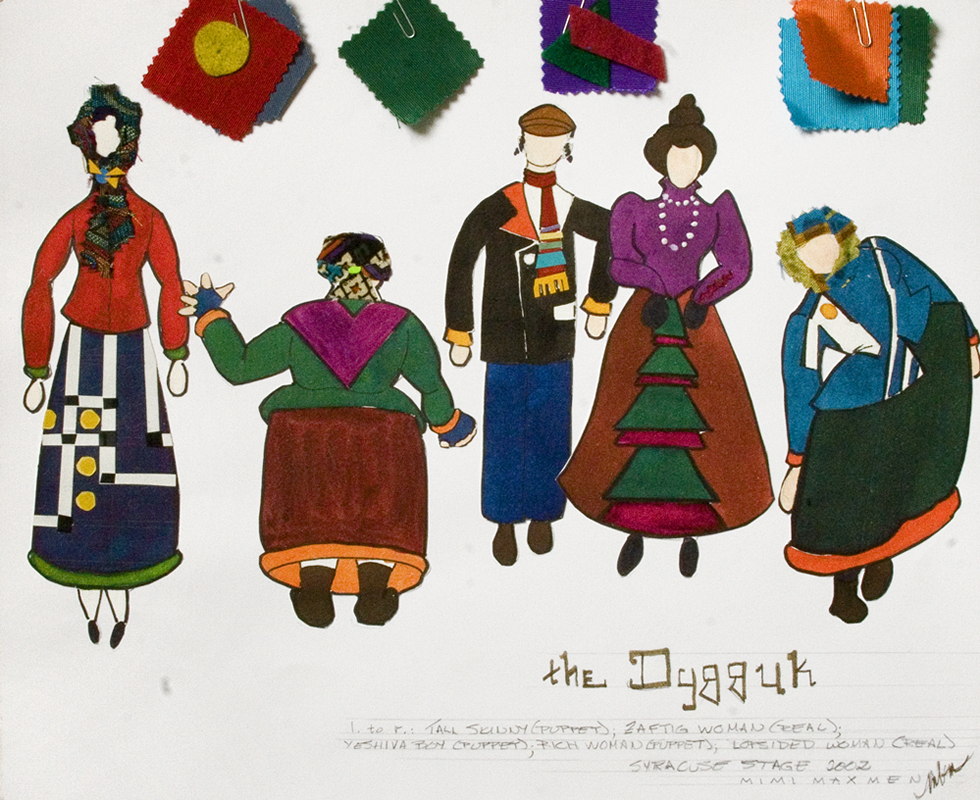 the Dygguk
l. to r.: TALL SKINNY (PUPPET); ZAFTIG WOMAN (REAL);
YESHIVA BOY (PUPPET); RICH WOMAN (PUPPET); LOPSIDED WOMAN (REAL)
SYRACUSE STAGE 2002
MIMI MAXMEN